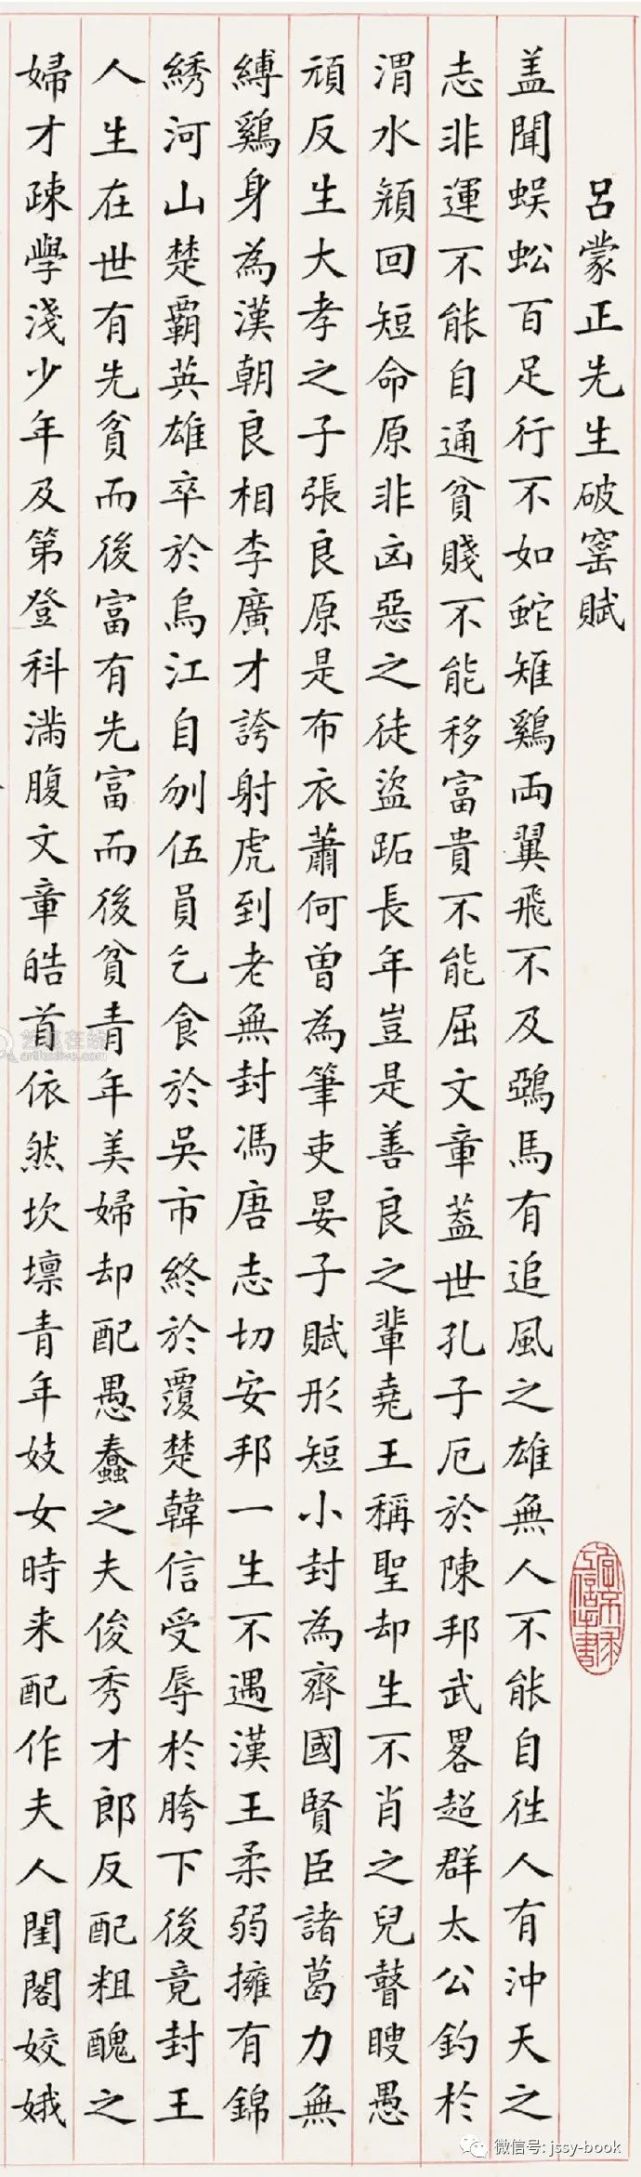 呂蒙正先生破窰賦
盖聞蜈蚣百足行不如蛇雉鷄両翼飛不及鵶馬有追風之雄無人不能自徃人有沖天之
志非運不能自通貧賤不能移富貴不能屈文章蓋世孔子厄於陳邦武畧超群太公釣於
渭水顏回短命原非凶惡之徒盜跖長年豈是善良之輩堯王稱聖却生不肖之兒瞽瞍愚
頑反生大孝之子張良原是布衣蕭何曾為筆吏晏子賦形短小封為齊國賢臣諸葛力無
縛鷄身為漢朝良相李廣才誇射虎到老無封馮唐志切安邦一生不遇漢王柔弱擁有錦
綉河山楚霸英雄卒於烏江自刎伍員乞食於吳市終於覆楚韓信受辱於胯下後竟封王
人生在世有先貧而後富有先富而後貧青年美婦却配愚蠢之夫俊秀才郎反配粗醜之
婦才疎學淺少年及第登科滿腹文章皓首依然坎壈青年妓女時来配作夫人閨閣姣娥
艺狐在线
artfoxlive.com
微信号: jssy-book